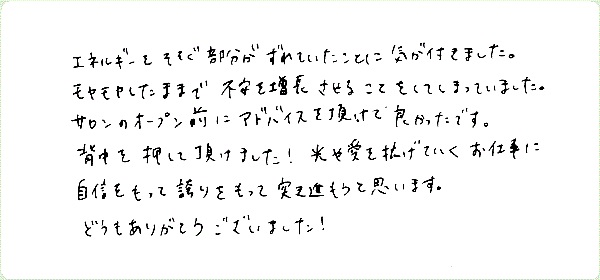 エネルギーをそそぐ部分がずれていたことに気が付きました。
モヤモヤしたままで不安を増長させることをしてしまっていました。
サロンのオープン前にアドバイスを頂けて良かったです。
背中を押して頂けました！光や愛を拡げていくお仕事に
自信をもって誇りをもって突き進もうと思います。
どうもありがとうございました！